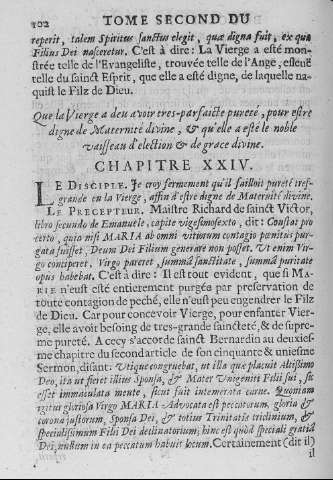 102 TOME SECOND DU
reperit, talem Spiritus sanctus elegit, quæ digna fuit, ex qua
Filius Dei nasceretur. C'est à dire: La Vierge a esté mon-
strée telle de l'Evangeliste, trouvée telle de l'Ange, esleuë
telle du sainct Esprit, que elle a esté digne, de laquelle na-
quist le Filz de Dieu.
Que la Vierge a deu avoir tres-parfaicte pureté, pour estre
digne de Maternité divine, & qu'elle a esté le noble
vaisseau d'election & de grace divine.
CHAPITRE XXIV.
LE DISCIPLE. Je croy fermement qu'il failloit pureté tres-
grande en la Vierge, affin d'estre digne de Maternité divine.
LE PRECEPTEUR. Maistre Richard de sainct Victor,
libro secundo de Emanuele, capite vigesimosexto, dit: Constat pro
certo, quia nisi MARIA ab omni vitiorum contagio penitus pur-
gata fuisset, Deum Dei Filium generare non posset. Ut enim Vir-
go conciperet, Virgo pareret, summa sanctitate, summa puritate
opus habebat. C'est à dire: Il est tout evident, que si MA-
RIE n'eust esté entierement purgée par preservation de
toute contagion de peché, elle n'eust peu engendrer le Filz
de Dieu. Car pour concevoir Vierge, pour enfanter Vier-
ge, elle avoit besoing de tres-grande saincteté, & de supre-
me pureté. A cecy s'accorde sainct Bernardin au deuxies-
me chapitre du second article de son cinquante & uniesme
Sermon, disant: Utique congruebat, ut illa quæ placuit Altissimo
Deo, ita ut fieret illius Sponsa, & Mater Unigeniti Filii sui, sic
esset immaculata mente, sicut fuit intemerata carne. Quoniam
igitur gloriosa Virgo MARIA Advocata est peccatorum, gloria &
corona justorum, Sponsa Dei, & totius Trinitatis triclinium, &
specialissimum Filii Dei declinatorium; hinc est quòd speciali gratiâ
Dei, nullum in ea peccatum habuit locum. Certainement (dit il)
il